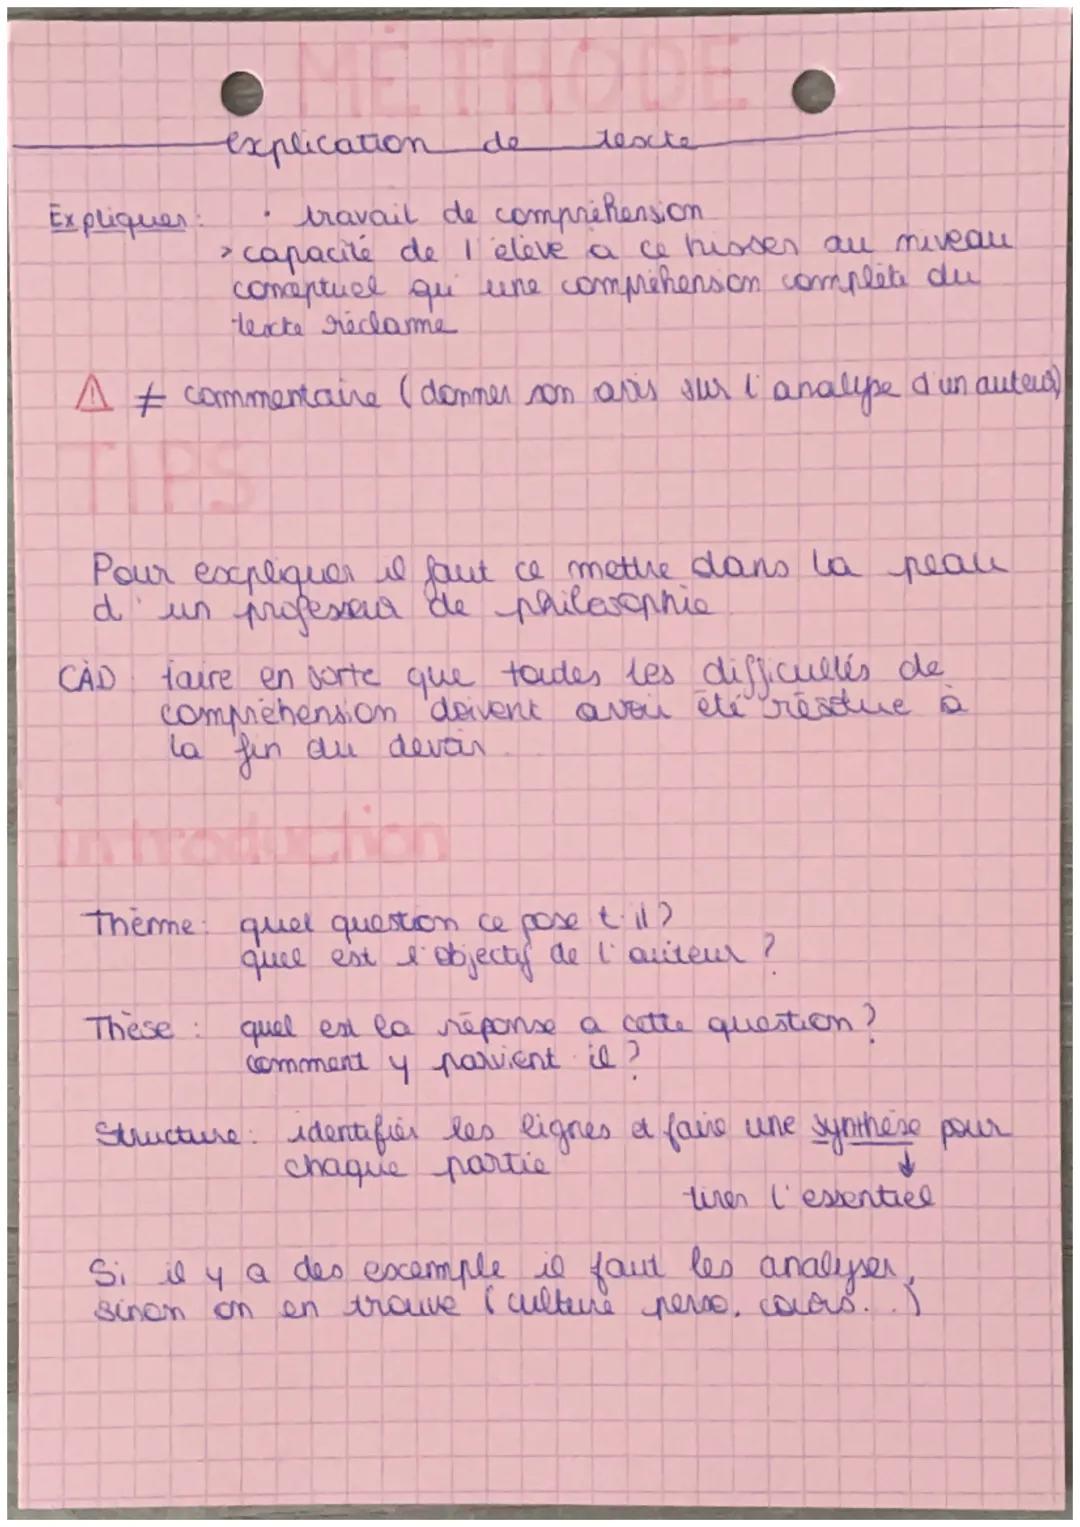 MÉTHODE
explication de texte
Expliquer : • travail de compréhension
> capacité de l'élève a ce hisser au niveau
conceptuel qu'une compréhension complète du
texte réclame
⚠ ≠ commentaire (donner son avis sur l'analyse d'un auteur)
TIPS
Pour expliquer il faut ce mettre dans la peau
d'un professeur de philosophie
CÀD : faire en sorte que toutes les difficultés de
compréhension doivent avoir été résolue à
la fin du devoir
introduction
Thème : quel question ce pose t-il ?
quel est l'objectif de l'auteur ?
Thèse : quel est la réponse a cette question ?
comment y parvient il ?
Structure : identifier les lignes et faire une synthèse pour
chaque partie
↓
tirer l'essentiel
Si il y a des exemple il faut les analyser,
sinon on en trouve (culture perso, cours...)